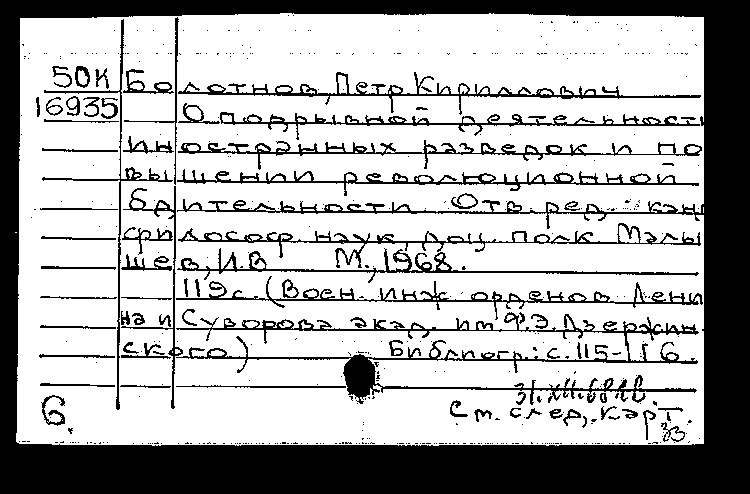 50К Болотнов, Петр Кириллович
16935 О подрывной деятельност
иностранных разведок и по
вышении революционной
бдительности. Отв. ред. канд
философ. наук, доц. полк. Малы
шев, И.В М., 1968.
119с. (Воен. инж орденов Лени
на и Суворова акад. им. Ф.Э. Дзержин
ского) Библиогр.: с. 115-116.
31.XII.68
6. См. след. карт.
33